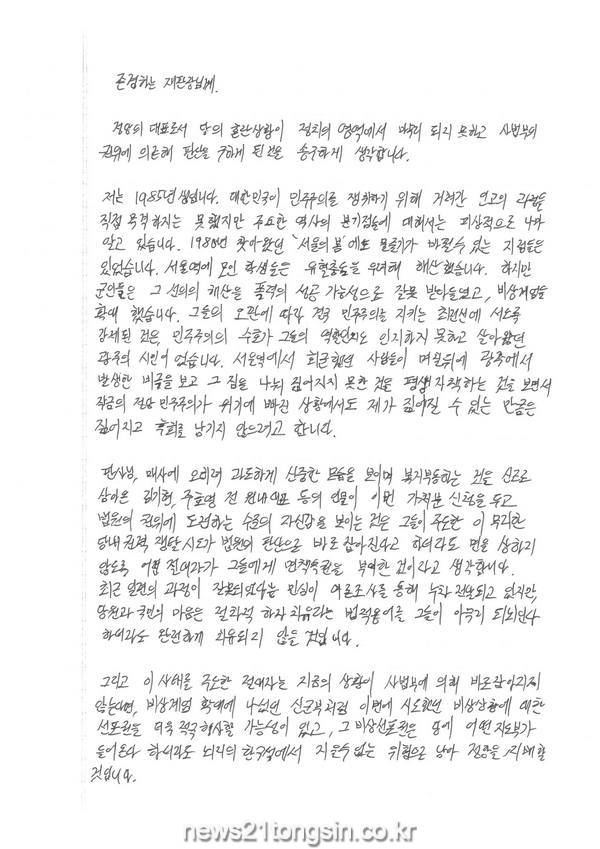 존경하는 재판장님께.
정당의 대표로서 당의 혼란상황이 정치의 영역에서 마무리 되지 못하고 사법부의
권위에 의존해 판단을 구하게 된 것을 송구하게 생각합니다.
저는 1985년생입니다. 대한민국이 민주주의를 쟁취하기 위해 거쳐간 연고의 과정을
직접 목격하지는 못했지만 주요한 역사의 분기점들에 대해서는 피상적으로 나마
알고 있습니다. 1980년 찾아왔던 '서울의 봄'에도 물줄기가 바뀔 수 있는 지점들은
있었습니다. 서울역에 모인 학생들은 유혈충돌을 우려해 해산했습니다. 하지만
군인들은 그 선의의 해산을 폭력의 성공 가능성으로 잘못 받아들였고, 비상계엄을
확대 했습니다. 그들의 오판에 따라 결국 민주주의를 지키는 최전선에 서도록
강제된 것은, 민주주의의 수호가 그들의 역할인지도 인지하지 못하고 살아왔던
광주의 시민이었습니다. 서울역에서 회군했던 사람들이 며칠뒤에 광주에서
발생한 비극을 보고 그 짐을 나눠 짊어지지 못한 것을 평생 자책하는 것을 보면서
작금의 정당 민주주의가 위기에 빠진 상황에서도 제가 짊어질 수 있는 만큼은
짊어지고 후회를 남기지 않으려고 합니다.
판사님, 매사에 오히려 과도하게 신중한 모습을 보이며 복지부동하는 것을 신조로
삼아온 김기현, 주호영 전 원내대표 등의 인물이 이번 가처분 신청을 두고
법원의 권위에 도전하는 수준의 자신감을 보이는 것은 그들이 주도한 이 무리한
당내 권력 쟁탈시도가 법원의 판단으로 바로잡아진다고 하더라도 면을 상하지
않도록 어떤 절대자가 그들에게 면책특권을 부여한 것이라고 생각합니다.
최근 일련의 과정이 잘못되었다는 민심이 여론조사를 통해 누차 전달되고 있지만,
당원과 국민의 마음은 절차적 하자 치유라는 법적용어를 그들이 아무리 되뇌인다
하더라도 완전하게 치유되지 않을 것입니다.
그리고 이 사태를 주도한 절대자는 지금의 상황이 사법부에 의해 바로잡아지지
않는다면, 비상계엄 확대에 나섰던 신군부처럼 이번에 시도했던 비상상황에 대한
선포권을 더욱 적극 행사할 가능성이 있고, 그 비상선포권은 당에 어떤 지도부가
들어온다 하더라도 뇌리의 한구석에서 지울수 없는 위협으로 남아 정당을 지배할
것입니다.
news21tongsin.co.kr